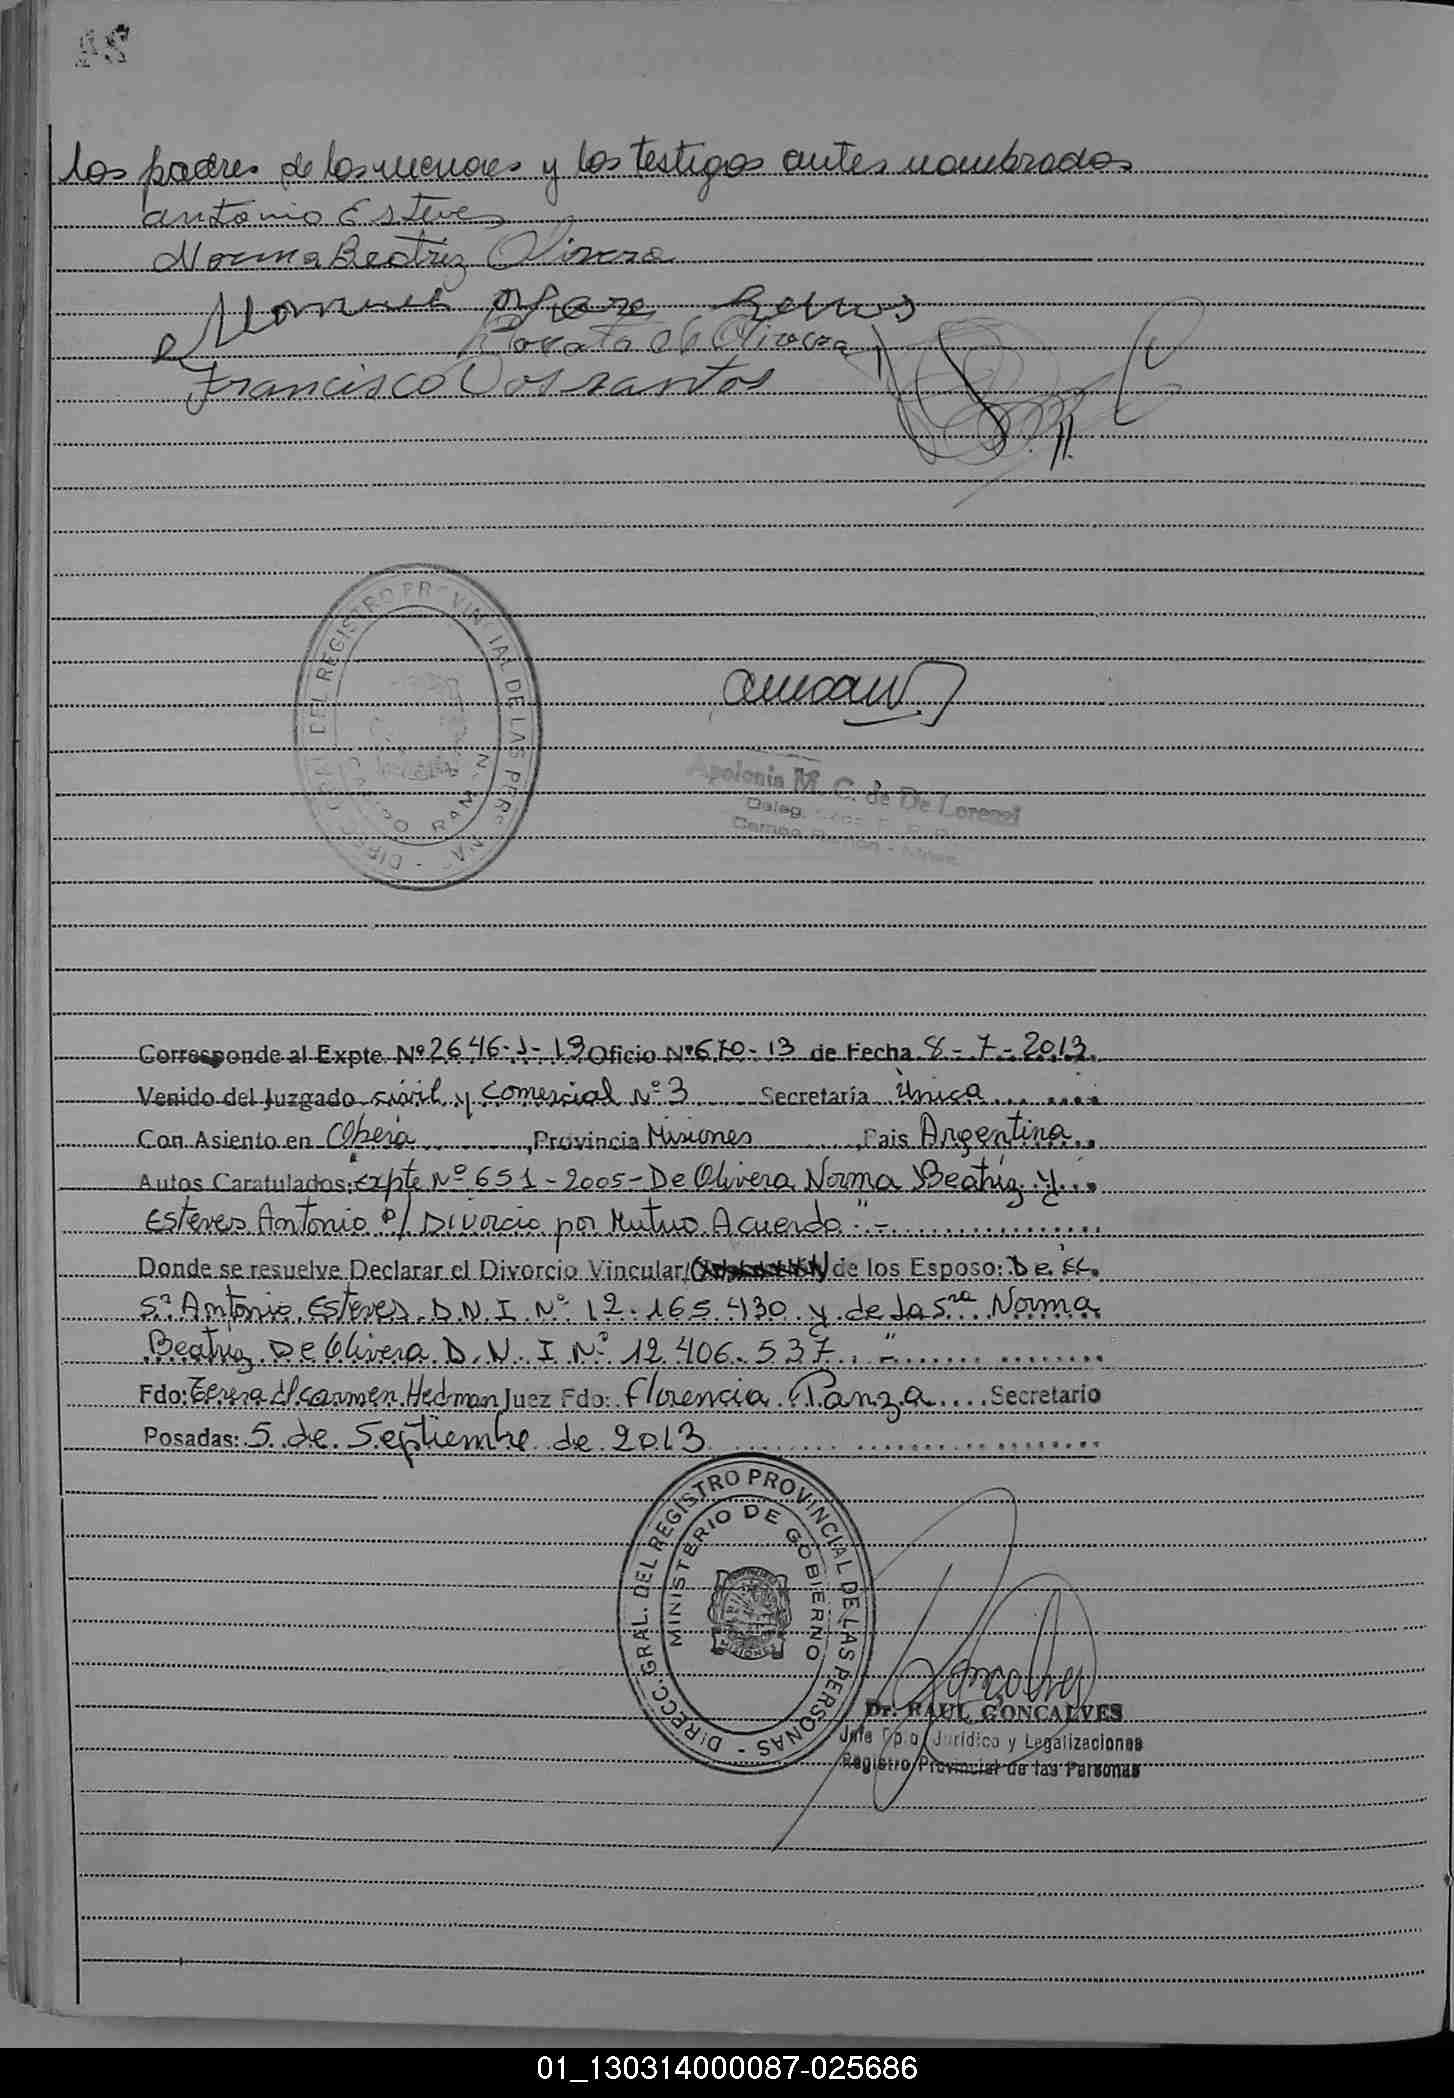 los padres de los menores y los testigos antes nombrados
antonio Esteves
Norma Beatriz Olivera
Ramos
Olivera
Francisco Dossantos
DIRECC. GRAL. DEL REGISTRO PROVINCIAL DE LAS PERSONAS
CAMPO RAMON
Apolonia M. C. de De Lorenzi
Deleg.
Campo Ramón - Mnes.
Corresponde al Expte. Nº 2646-J-13 Oficio Nº 670-13 de Fecha 8-7-2013.
Venido del Juzgado civil y Comercial Nº 3 Secretaría Única
Con Asiento en Oberá, Provincia Misiones, Pais Argentina
Autos Caratulados: Expte Nº 651-2005- De Olivera Norma Beatriz y
Esteves Antonio s/ Divorcio por Mutuo Acuerdo"-
Donde se resuelve Declarar el Divorcio Vincular/ de los Esposo: De El
Sr Antonio Esteves D.N.I Nº 12.165.430 y de la Sra Norma
Beatriz De Olivera D.N.I Nº 12.406.537."-
Fdo: Teresa del Carmen Hedman Juez Fdo: Florencia Panza Secretario
Posadas: 5 de Septiembre de 2013
DIRECC. GRAL. DEL REGISTRO PROVINCIAL DE LAS PERSONAS
MINISTERIO DE GOBIERNO
MISIONES
Dr. RAUL GONCALVES
Jefe Dpto. Jurídico y Legalizaciones
Registro Provincial de las Personas
01_130314000087-025686